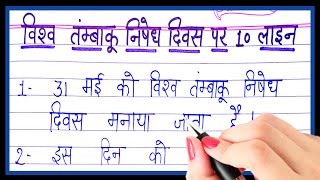 विश्व तंम्बाकू निषेध दिवस पर 10 लाइन
1- 31 मई को विश्व तंम्बाकू निषेध
दिवस मनाया जाता है।
2- इस दिन को